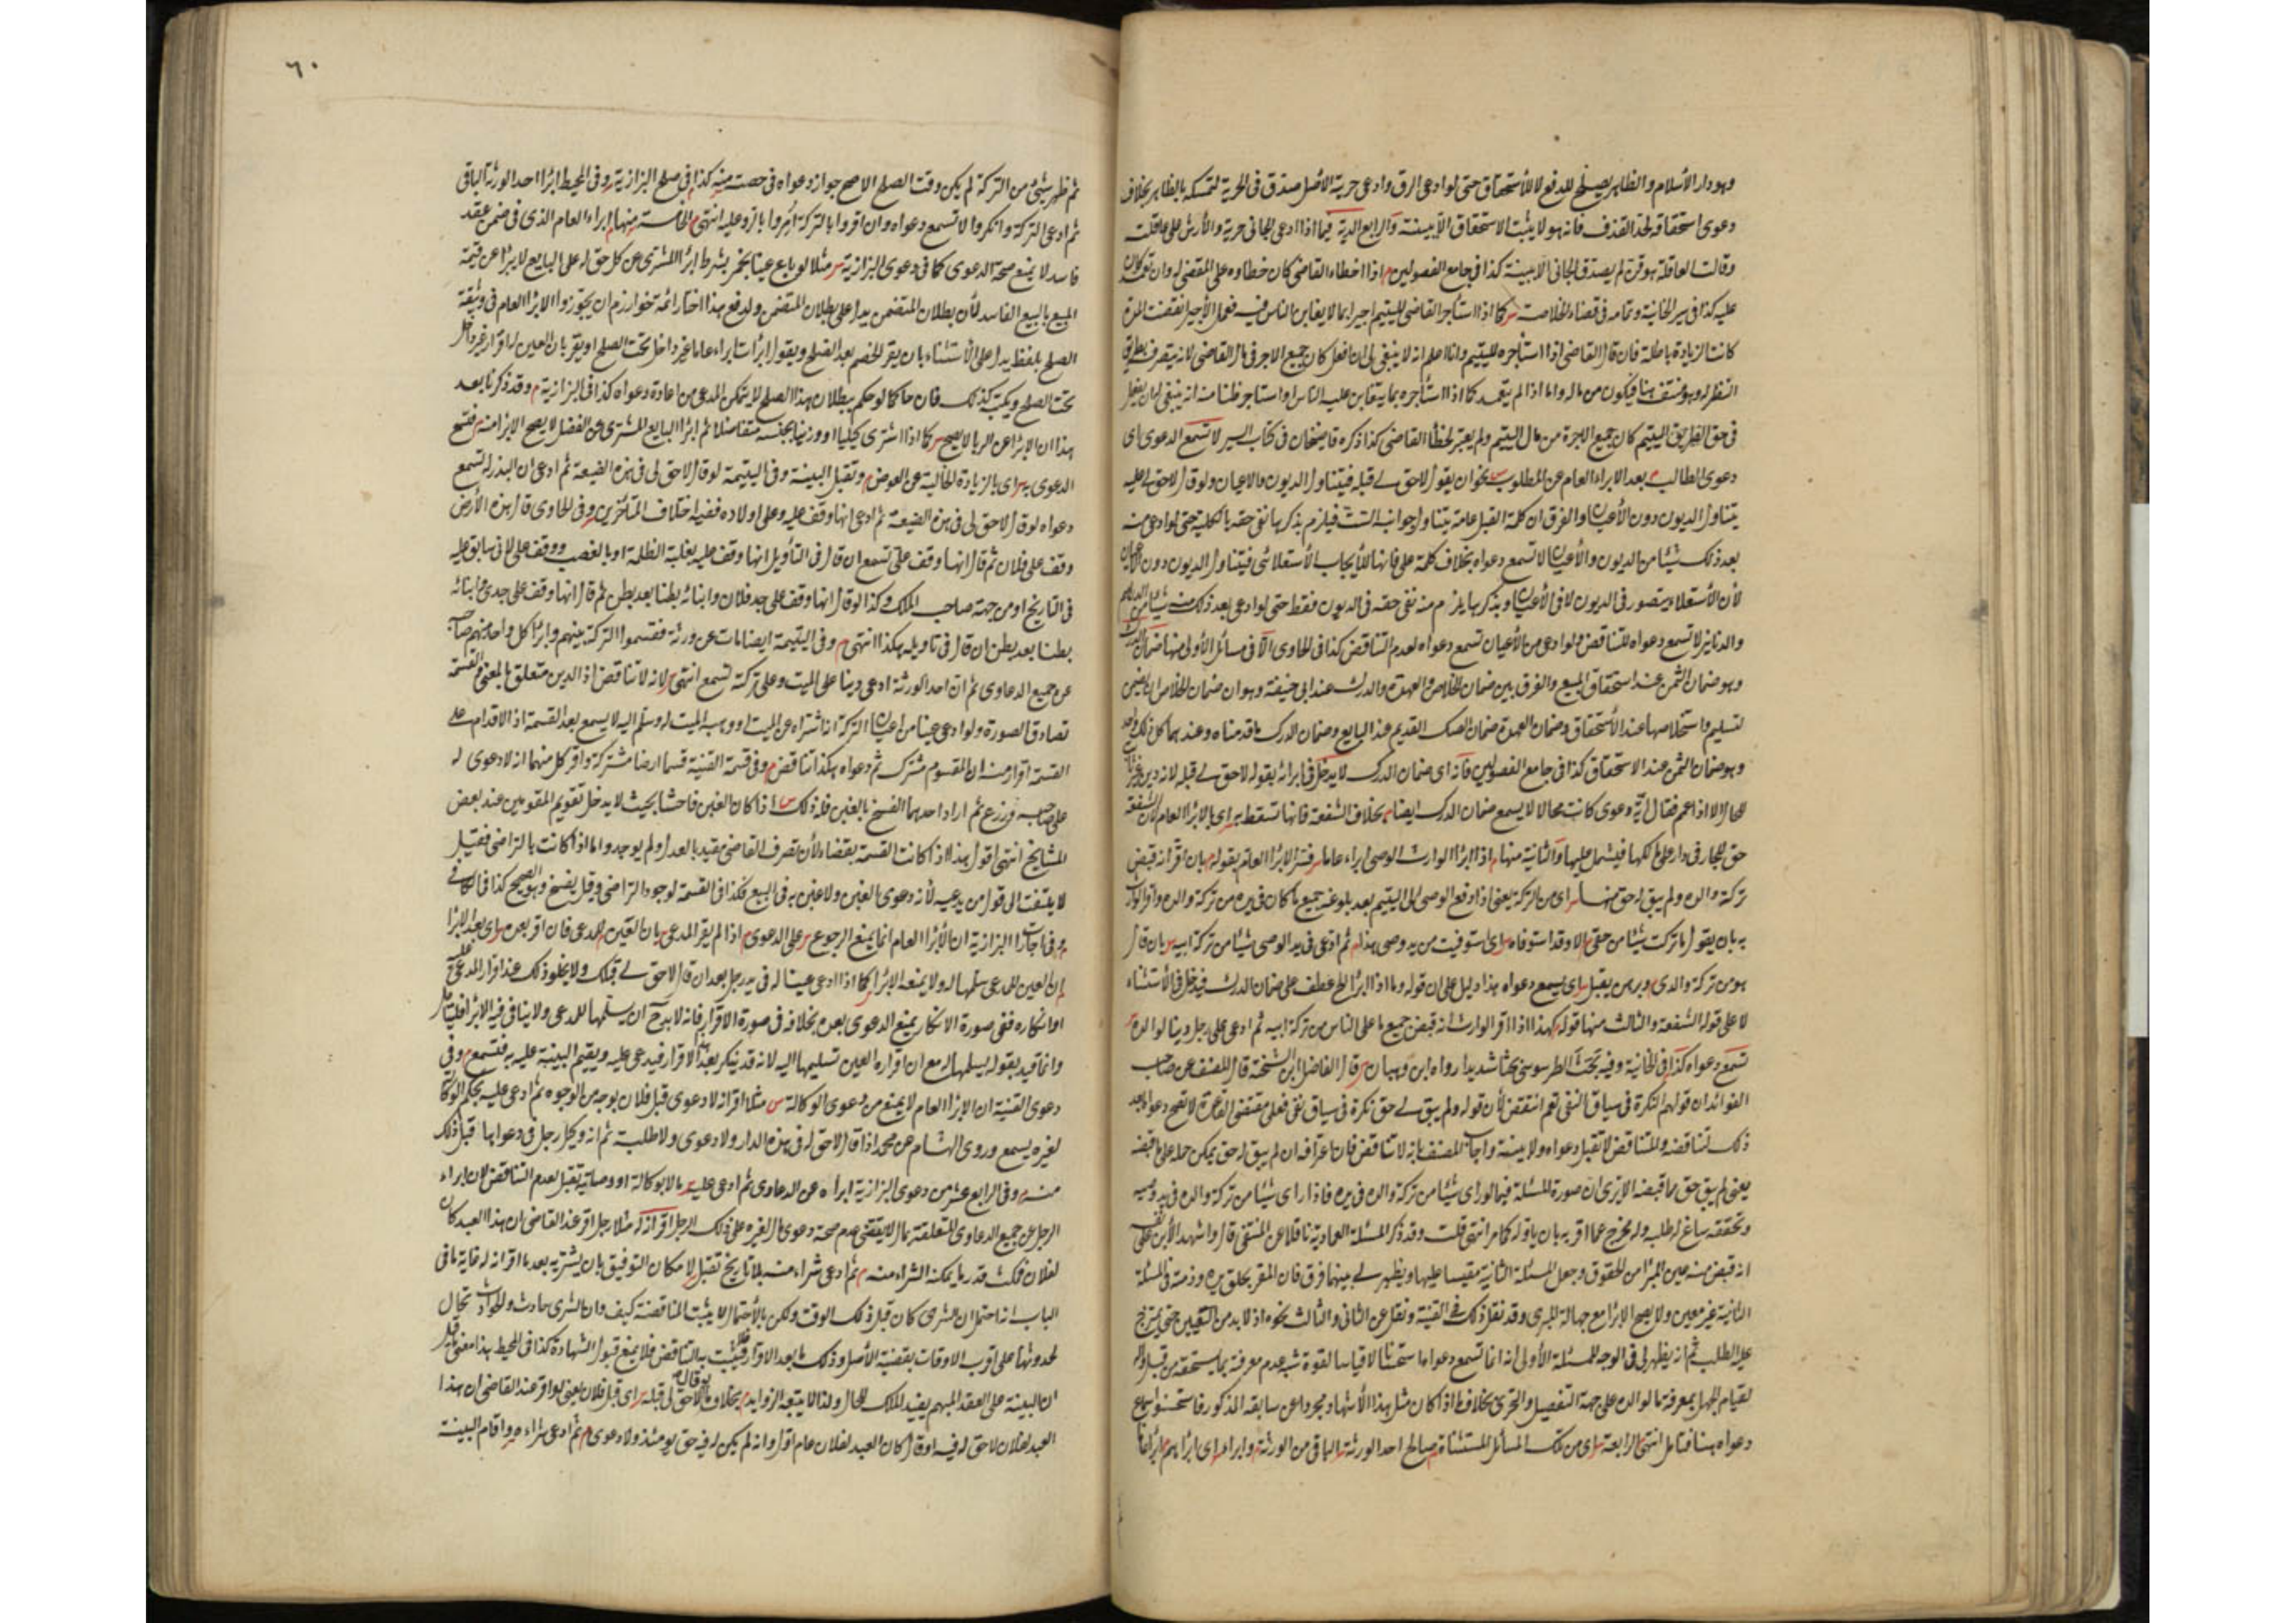 وهو دار الأسلام والظاهر يصلح للدفع لا للأستحقاق حتى لو ادعى الرق وادعى حرية الأصل صدق في الحرية لتمسكه بالظاهر بخلاف
دعوى استحقاقه لحد القذف فانه هو لا يثبت الاستحقاق الا ببينة والرابع الدية فيما اذا ادعى الجاني حرية والأرش على عاقلته
وقالت العاقلة هو قن لم يصدق الجاني الا ببينة كذا في جامع الفصولين م اذا اخطاء القاضي كان خطاوه على المقضي له وان تعمد كان
عليه كذا في سير الخانية وتمامه في قضاء الخلاصة س كما اذا استأجر القاضي لليتيم اجيرا بما لا يغابن الناس فيه فعمل الأجير انقضت المدة
كانت الزيادة باطلة فان قال القاضي اذا استأجره لليتيم وانا اعلم انه لا ينبغي لي ان افعل كان جميع الاجر في مال القاضي لانه يتصرف بطريق
النظر له وهو منتف هنا فيكون من ماله واما اذا لم يتعمد كما اذا استأجره بما يتغابن عليه الناس او استاجر ظنا منه انه ينبغي له ان يفعل
في حق اليتيم كان جميع الاجرة من مال اليتيم ولم يعتبر لخطأ القاضي كذا ذكره قاضيخان في كتاب السير لا تسمع الدعوى اي
دعوى الطالب م بعد الابراء العام عن المطلوب س نحو ان يقول لا حق لي قبله فيتناول الديون والاعيان ولو قال لا حق لي عليه
يتناول الديون دون الأعيان والفرق ان كلمة القبل عامة يتناول جوانبه الست فيلزم بذكرها نفى حقه بالكلية حتى لو ادعى منه
بعد ذلك شيئا من الديون والأعيان لا تسمع دعواه بخلاف كلمة على فانها للأيجاب الأستعلائي فيتناول الديون دون الأعيان
لأن الأستعلاء يتصور في الديون لا في الأعيان وبذكرها يلزم منه نفى حقه في الديون فقط حتى لو ادعى بعد ذلك منه شيئا من الدراهم
والدنانير لا تسمع دعواه للتناقض ولو ادعى من الأعيان تسمع دعواه لعدم التناقض كذا في الحاوى الا في مسائل الأولى منها ضمان الدرك
وهو ضمان الثمن عند استحقاق المبيع والفرق بين ضمان الخلاص والعهدة والدرك عند ابي حنيفة وهو ان ضمان الخلاص
لتسليم واستخلاصها عند الأستحقاق وضمان العهدة ضمان الصك القديم عند البايع وضمان الدرك ما قدمناه وعندهما كل ذلك واحد
وهو ضمان الثمن عند الاستحقاق كذا في جامع الفصولين فانه اي ضمان الدرك لا يدخل في ابرائه بقوله لا حق لي قبله لانه دين
للحال الا اذا عمم فقال اية دعوى كانت محالا لا يسمع ضمان الدرك ايضا م بخلاف الشفعة فانها تسقط به اي بالابرا العام لان الشفعة
حق للجار في دار على مالكها فيشمل عليها والثانية منها م اذا ابرا الوارث الوصي ابراء عاما س فسر الابرا العام بقوله م بان اقر انه قبض
تركة والده ولم يبق له حق منها س اي من التركة يعني اذا دفع الوصي الى اليتيم بعد بلوغه جميع ما كان في يده من تركة والده واقر الوارث
به بان يقول ما تركت شيئا من حقي الا وقد استوفاه س اي استوفيت من يد وصي هذا م ثم ادعى في يد الوصي شيئا من تركة ابيه س بان قال
هو من تركة والدي م وبرهن يقبل س اي يسمع دعواه هذا دليل على ان قوله وما اذا ابرا الخ عطف على ضمان الدرك فيدخل في الأستثناء
لا على قوله الشفعة والثالث منها قوله كهذا اذا اقر الوارث انه قبض جميع ما على الناس من تركة ابيه ثم ادعى على رجل دينا لوالده
تسمع دعواه كذا في الخانية وفيه بحث الطرسوسي بحثا شديدا رواه ابن وهبان س قال الفاضل ابن الشحنة قال المصنف عن صاحب
الفوائد ان قولهم النكرة في سياق النفي تعم انتقض لأن قوله ولم يبق لي حق نكرة في سياق نفي فعلى مقتضى القاعدة لا تصح دعواه بعد
ذلك لتناقضه والمتناقض لا تقبل دعواه ولا بينته واجاب المصنف بانه لا تناقض فان اعترافه ان لم يبق له حق يمكن حمله على ما قبضه
يعني لم يبق حق مما قبضه الا ترى ان صورة المسئلة فيما لو راى شيئا من تركة والده في يده فاذا راى شيئا من تركة والده في يد وصيه
وتحققه ساغ له طلبه وله مخرج عما اقر به بان ياوله كما مر انتهى قلت وقد ذكر المسئلة العمادية ناقلا عن المنتقى قال واشهد الأبن على نفسه
انه قبض منه عين المبرا من الحقوق وجعل المسئلة الثانية مقيسا عليها ويظهر لي بينهما فرق فان المقر بخلو يده وذمته في المسئلة
الثانية غير معين ولا يصح الابرا مع جهالة المبرى وقد نقل ذلك في القنية ونقل عن الثاني والثالث نحوه اذ لا بد من التعيين حتى يخرج
عليه الطلب ثم انه يظهر لي في الوجه للمسئلة الأولى انه انما تسمع دعواها استحسانا لا قياسا لقوة شبه عدم معرفته بما يستحقه من قبل والده
لقيام الجهل بمعرفة ما لوالده على جهة التفصيل والتحرى بخلاف ما اذا كان مثل هذا الأشهاد مجردا عن سابقه المذكور فاستحسنوا سماع
دعواه هنا فتامل انتهى الرابعة س اي من تلك المسائل المستثناة م صالح احد الورثة س الباقي من الورثة م وابرا م اي ابراهم ابراء عاما
٦٠
ثم ظهر شئ من التركة لم يكن وقت الصلح الاصح جواز دعواه في حصته منه كذا في صلح البزازية س وفي المحيط ابرا احد الورثة الباقي
ثم ادعى التركة وانكروا لا تسمع دعواه وان اقروا بالتركة امروا بالرد عليه انتهى م الخامسة منها م الابراء العام الذي في ضمن عقد
فاسد لا يمنع صحة الدعوى كما في دعوى البزازية س مثلا لو باع عينا بخمر بشرط ابرا المشترى عن كل حق له على البايع لا يبرا عن قيمة
المبيع بالبيع الفاسد لأن بطلان المتضمن يدل على بطلان المتضمن ولدفع هذا اختار ائمة خوارزم ان يحترزوا الابرا العام في وثيقة
الصلح بلفظ يدل على الأستثناء بان يقر الخصم بعد الصلح ويقول ابرأت ابراء عاما غير داخل تحت الصلح او يقر بان العين له اقرارا غير داخل
تحت الصلح ويكتب كذلك فان حاكما لو حكم ببطلان هذا الصلح لا يتمكن المدعى من اعادة دعواه كذا في البزازية م وقد ذكرنا بعد
هذا ان الابرا عن الربا لا يصح س كما اذا اشترى كيليا او وزنيا بجنسه متفاضلا ثم ابرا البايع المشترى عن الفضل لا يصح الابرا منه س فتصح
الدعوى به س اي بالزيادة الخالية عن العوض م وتقبل البينة وفي اليتيمة لو قال لا حق لي في هذه الضيعة ثم ادعى ان البذر له تسمع
دعواه لو قال لا حق لي في هذه الضيعة ثم ادعى انها وقف عليه وعلى اولاده ففيه اختلاف المتأخرين س وفي الحاوى قال هذه الأرض
وقف على فلان ثم قال انها وقف علي تسمع ان قال في التأويل انها وقف عليه بغلبة الظلمة او بالغصب ووقف علي لاني سابق عليه
في التاريخ او من جهة صاحب الملك وكذا لو قال انها وقف على جد فلان وابنائه بطنا بعد بطن ثم قال انها وقف على جدى وابنائه
بطنا بعد بطن ان قال في تاويله هكذا انتهى م وفي اليتيمة ايضا مات عن ورثة فقسموا التركة بينهم وابرا كل واحد منهم صاحبه
عن جميع الدعاوى ثم ان احد الورثة ادعى دينا على الميت وعلى تركته تسمع انتهى س لانه لا تناقض اذ الدين متعلق بالمعنى والقسمة
تصادق الصورة ولو ادعى عينا من اعيان التركة انه اشتراه عن الميت او وهبه الميت له وسلم اليه لا يسمع بعد القسمة اذ الاقدام على
القسمة اقرار منه ان المقسوم مشترك ثم دعواه هكذا تناقض م وفي قسمة القنية قسما ارضا مشتركة واقر كل منهما انه لا دعوى له
على صاحبه وزرع ثم اراد احدهما الفسخ بالغبن فله ذلك س اذا كان الغبن فاحشا بحيث لا يدخل تقويم المقومين عند بعض
المشايخ انتهى اقول هذا اذا كانت القسمة بقضاء لأن تصرف القاضي مقيد بالعدل ولم يوجد واما اذا كانت بالتراضي فقيل
لا يلتفت الى قول من يدعيه لأنه دعوى الغبن ولا غبن به في البيع فكذا في القسمة لوجود التراضي وقيل يفسخ وهو الصحيح كذا في الكافي
م وفي اجارة البزازية ان الأبرا العام انما يمنع الرجوع س على الدعوى م اذا لم يقر المدعى س بان العين للمدعى فان اقر بعده س اي بعد الابرا
ان العين للمدعى سلمها له ولا يمنعه الابرا س كما اذا ادعى عينا له في يد رجل بعد ان قال لا حق لي قبلك ولا يخلو ذلك عند اقرار المدعى عليه
او انكاره ففي صورة الانكار يمنع الدعوى بعده بخلافه في صورة الاقرار فانه لا بد ح ان يسلمها للمدعى ولا ينافي فيه الابرا فليتأمل
وانما قيد بقوله يسلمها له مع ان اقراره العين تسليمها اليه لانه قد ينكر بعد الاقرار فيدعى عليه ويقيم البينة عليه به فتسمع م وفي
دعوى القنية ان الابرا العام لا يمنع من دعوى الوكالة س مثلا اقر انه لا دعوى قبل فلان بوجه من الوجوه ثم ادعى عليه بحكم الوكالة
لغيره يسمع وروى هشام عن محمد اذا قال لا حق له في هذه الدار ولا دعوى ولا طلبة ثم انه وكيل رجل في دعواها قبل ذلك
منه م وفي الرابع عشر من دعوى البزازية ابراه عن الدعاوى ثم ادعى عليه م مالا بوكالة او وصاية تقبل لعدم التناقض لان ابراء
الرجل عن جميع الدعاوى المتعلقة بماله لا يقتضي عدم صحة دعوى مال لغيره على ذلك الرجل اقر انه س مثلا رجل اقر عند القاضي ان هذا العبد كان
لفلان فمكث قدر ما يمكنه الشراء منه م ثم ادعى شراء منه بلا تاريخ تقبل لا مكان التوفيق بان يشتريه بعد ما اقر انه له غاية ما في
الباب انه احتمل ان الشرى كان قبل ذلك الوقت ولكن بالأحتمال لا يثبت المناقضة كيف وان الشرى حادث والحوادث تحال
لحدوثها على اقرب الاوقات بقضية الأصل وذلك ما بعد الاقرار فلا يثبت به التناقض فلا يمنع قبول الشهادة كذا في المحيط هذا معنى ما قيل
ان البينة على العقد المبهم يفيد الملك للحال ولذا لا يتبعه الزوايد م بخلاف ما لو قال لا حق لي قبله س اي قبل فلان يعني لو اقر عند القاضي ان هذا
العبد لفلان لا حق له فيه او قال كان العبد لفلان عام اول وانه لم يكن له فيه حق يومئذ ولا دعوى م ثم ادعى شراءه واقام البينة